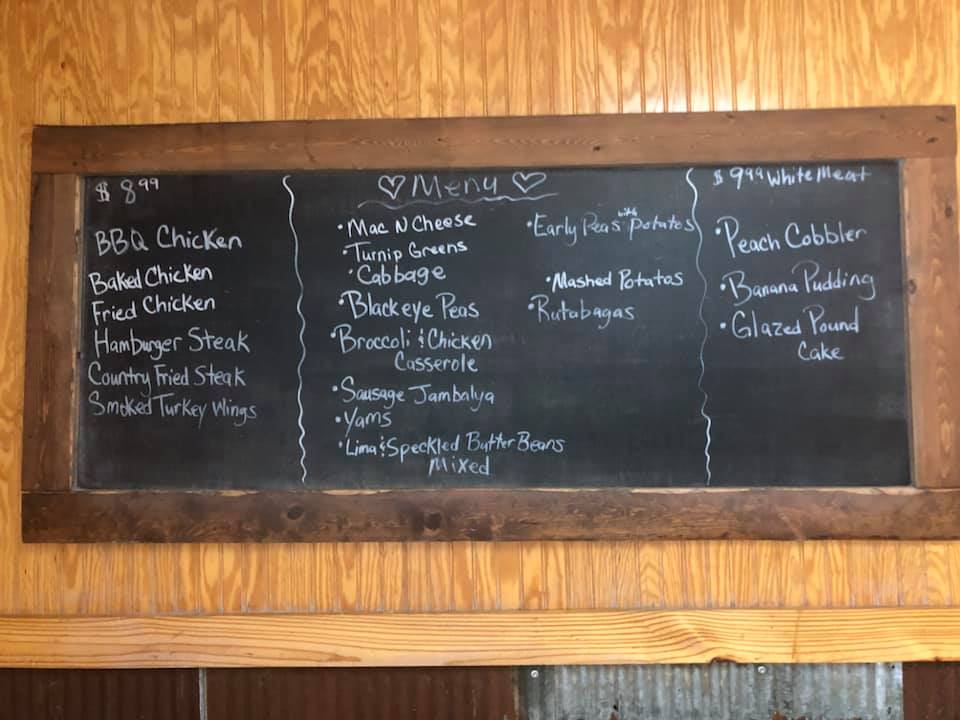 $ 8.99
BBQ Chicken
Baked Chicken
Fried Chicken
Hamburger Steak
Country Fried Steak
Smoked Turkey Wings
♡ Menu ♡
• Mac N Cheese
• Turnip Greens
• Cabbage
• Blackeye Peas
• Broccoli & Chicken
Casserole
• Sausage Jambalya
• Yams
• Lima & Speckled Butter Beans
Mixed
• Early Peas with potatos
• Mashed Potatos
• Rutabagas
$ 9.99 White Meat
• Peach Cobbler
• Banana Pudding
• Glazed Pound
Cake